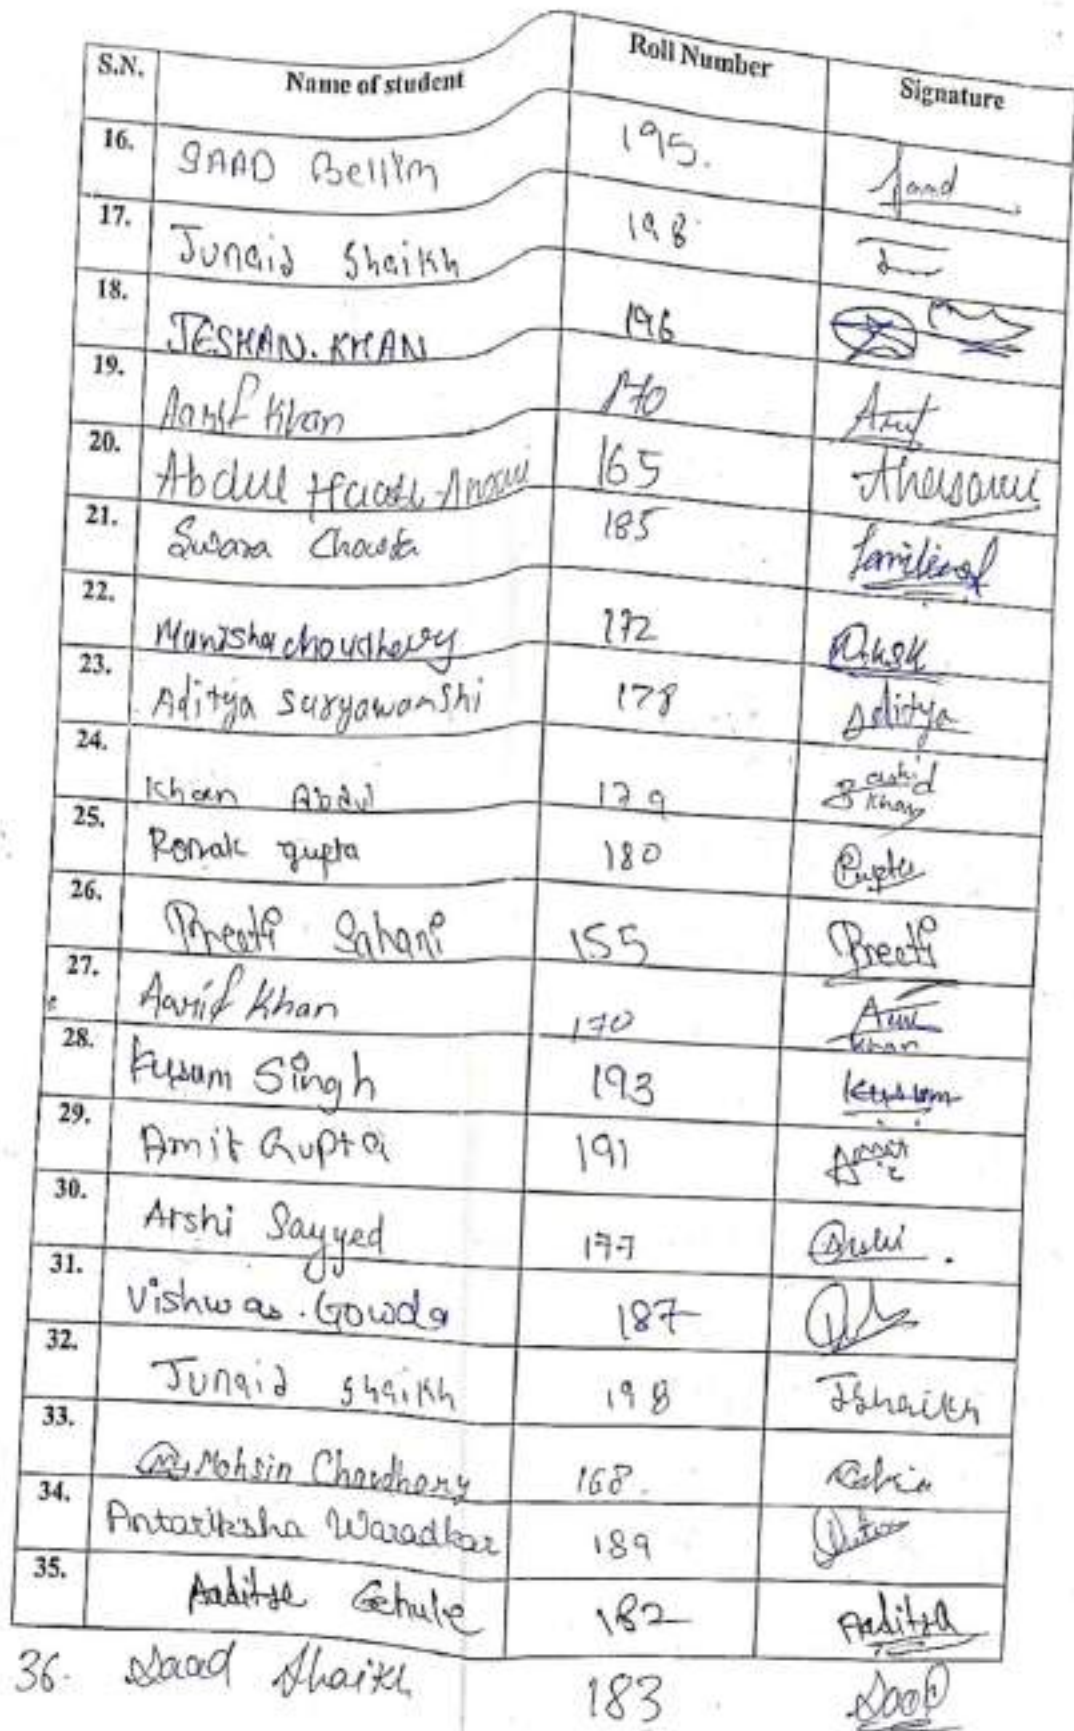 S.N. Name of student Roll Number Signature
16. SAAD Bellim 195. Saad
17. Junaid Shaikh 198
18. JESHAN. KHAN 196
19. Aarif Khan 170 Arif
20. Abdul Ansari 165
21. Swara 185
22. Manisha choudhary 172
23. Aditya Suryawanshi 178 Aditya
24. Khan Abdul 179 Khan
25. Ronak gupta 180 Gupta
26. Preeti Sahani 155 Preeti
27. Aarif Khan 170 khan
28. Kusum Singh 193 kusum
29. Amit Gupta 191 Amit
30. Arshi Sayyed 177 Arshi.
31. Vishwas. Gowda 187
32. Junaid Shaikh 198 JShaikh
33. Mohsin Chaudhary 168.
34. Antariksha Waradkar 189
35. Gehule 182
36. Saad Shaikh 183 Saad